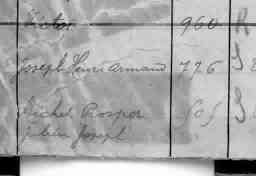 Victor 960
Joseph Henri Armand 776
Michel Prosper 505
Julien Joseph